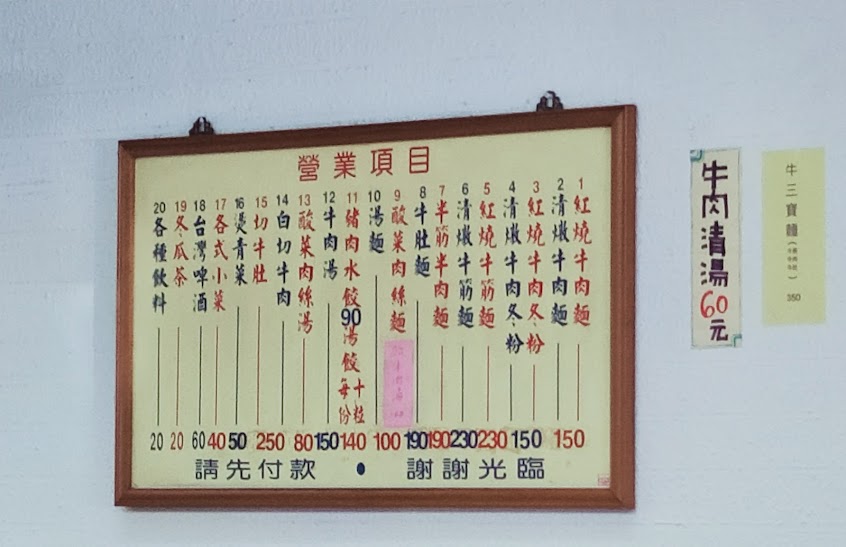 營業項目
1 紅燒牛肉麵
2 清燉牛肉麵
3 紅燒牛肉冬粉
4 清燉牛肉冬粉
5 紅燒牛筋麵
6 清燉牛筋麵
7 半筋半肉麵
8 牛肚麵
9 酸菜肉絲麵
10 湯麵
11 豬肉水餃90湯餃每份十粒
12 牛肉湯
13 酸菜肉絲湯
14 白切牛肉
15 切牛肚
16 燙青菜
17 各式小菜
18 台灣啤酒
19 冬瓜茶
20 各種飲料
20 20 60 40 50 250 80 150 140 100 190 190 230 230 150 150
請先付款 • 謝謝光臨
牛肉清湯60元
牛三寶麵
350